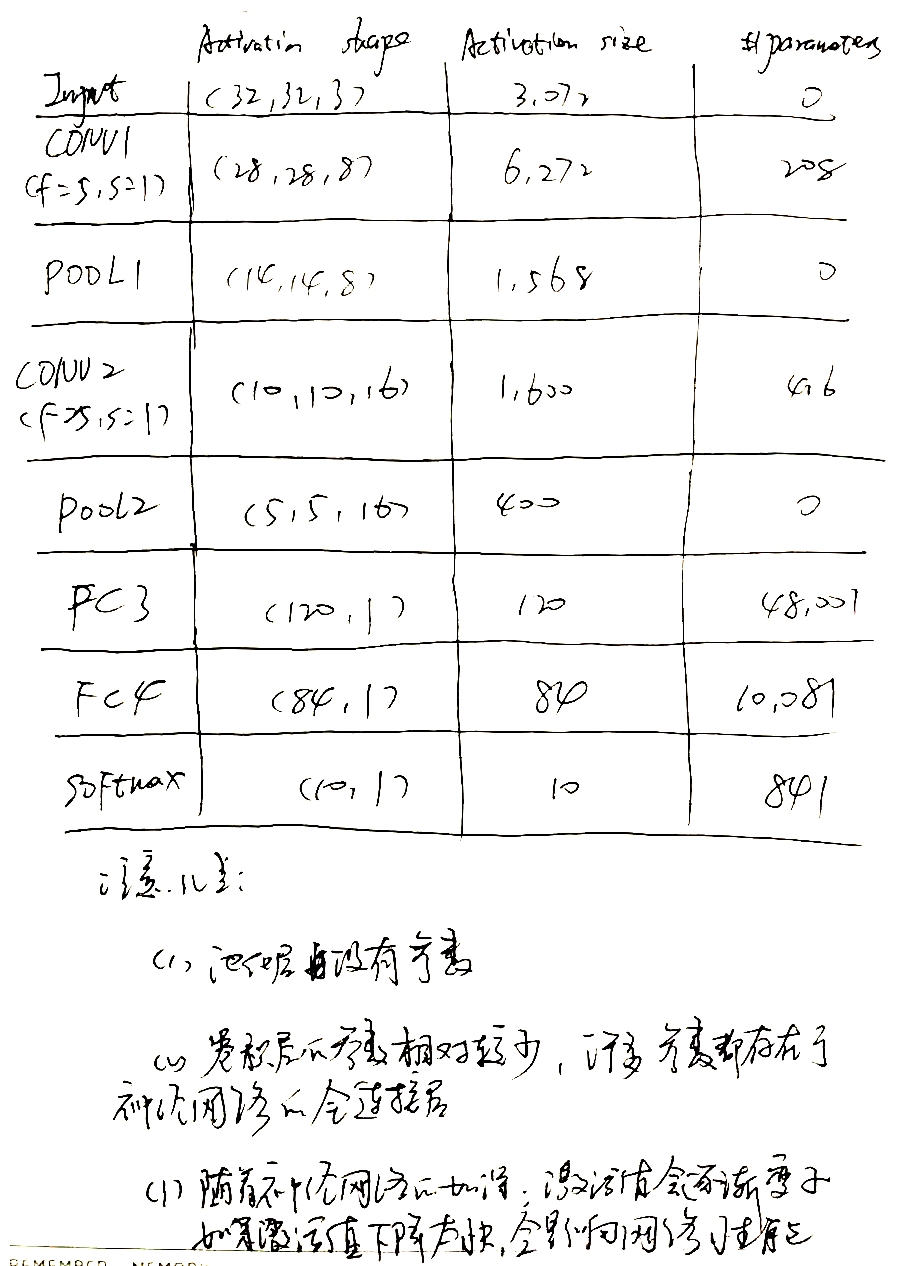 Activation shape Activation size # parameters
Input (32,32,3) 3,072 0
CONV1 (28,28,8) 6,272 208
(f=5,s=1)
POOL1 (14,14,8) 1,568 0
CONV2 (10,10,16) 1,600 416
(f=5,s=1)
POOL2 (5,5,16) 400 0
FC3 (120,1) 120 48,001
FC4 (84,1) 84 10,081
Softmax (10,1) 10 841
注意几点:
(1) 池化层没有参数
(2) 卷积层的参数相对较少,许多参数都存在于
神经网络的全连接层
(3) 随着神经网络的加深,激活值会逐渐变小
如果激活值下降太快,会影响网络性能
REMEMBER MEMORY